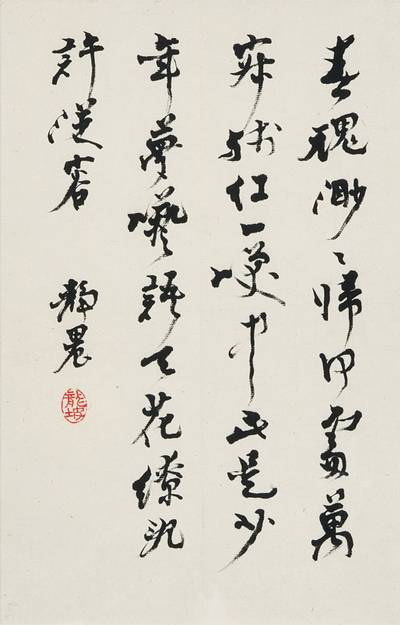 春魂渺〻歸何處萬
寂殘紅一笑中此是少
年夢囈語天花繚亂
許從容 靜農
龍坡